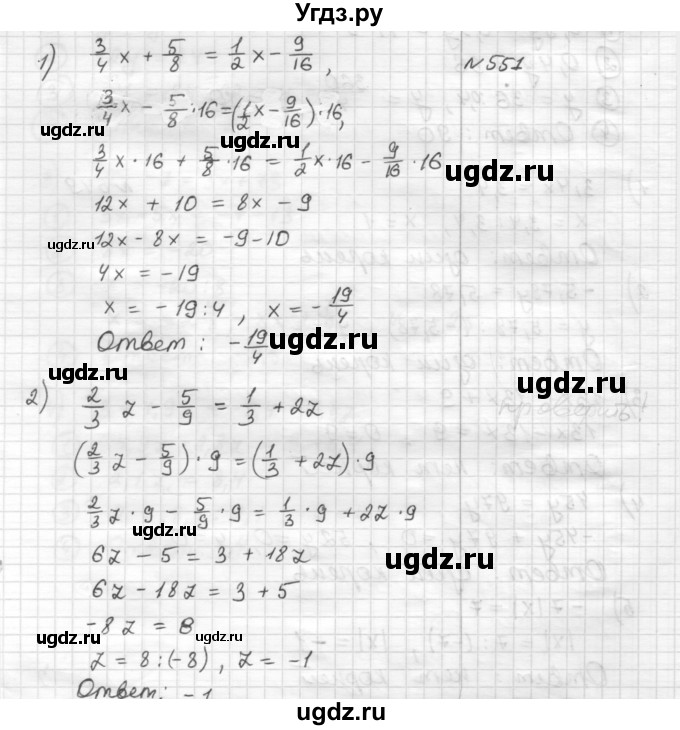 Угдз.ру
№551
1) 3/4 x + 5/8 = 1/2 x - 9/16,
3/4 x - 5/8 · 16 = (1/2 x - 9/16) · 16,
ugdz.ru
3/4 x · 16 + 5/8 · 16 = 1/2 x · 16 - 9/16 · 16
ugdz.ru
12x + 10 = 8x - 9
ugdz.ru
12x - 8x = -9 - 10
ugdz.ru
4x = -19
x = -19 : 4, x = -19/4
Ответ: -19/4
ugdz.ru
ugdz.ru
2) 2/3 z - 5/9 = 1/3 + 2z
ugdz.ru
(2/3 z - 5/9) · 9 = (1/3 + 2z) · 9
ugdz.ru
2/3 z · 9 - 5/9 · 9 = 1/3 · 9 + 2z · 9
ugdz.ru
6z - 5 = 3 + 18z
ugdz.ru
6z - 18z = 3 + 5
-8z = 8
ugdz.ru
ugdz.ru
z = 8 : (-8), z = -1
Ответ: -1
ugdz.ru
ugdz.ru